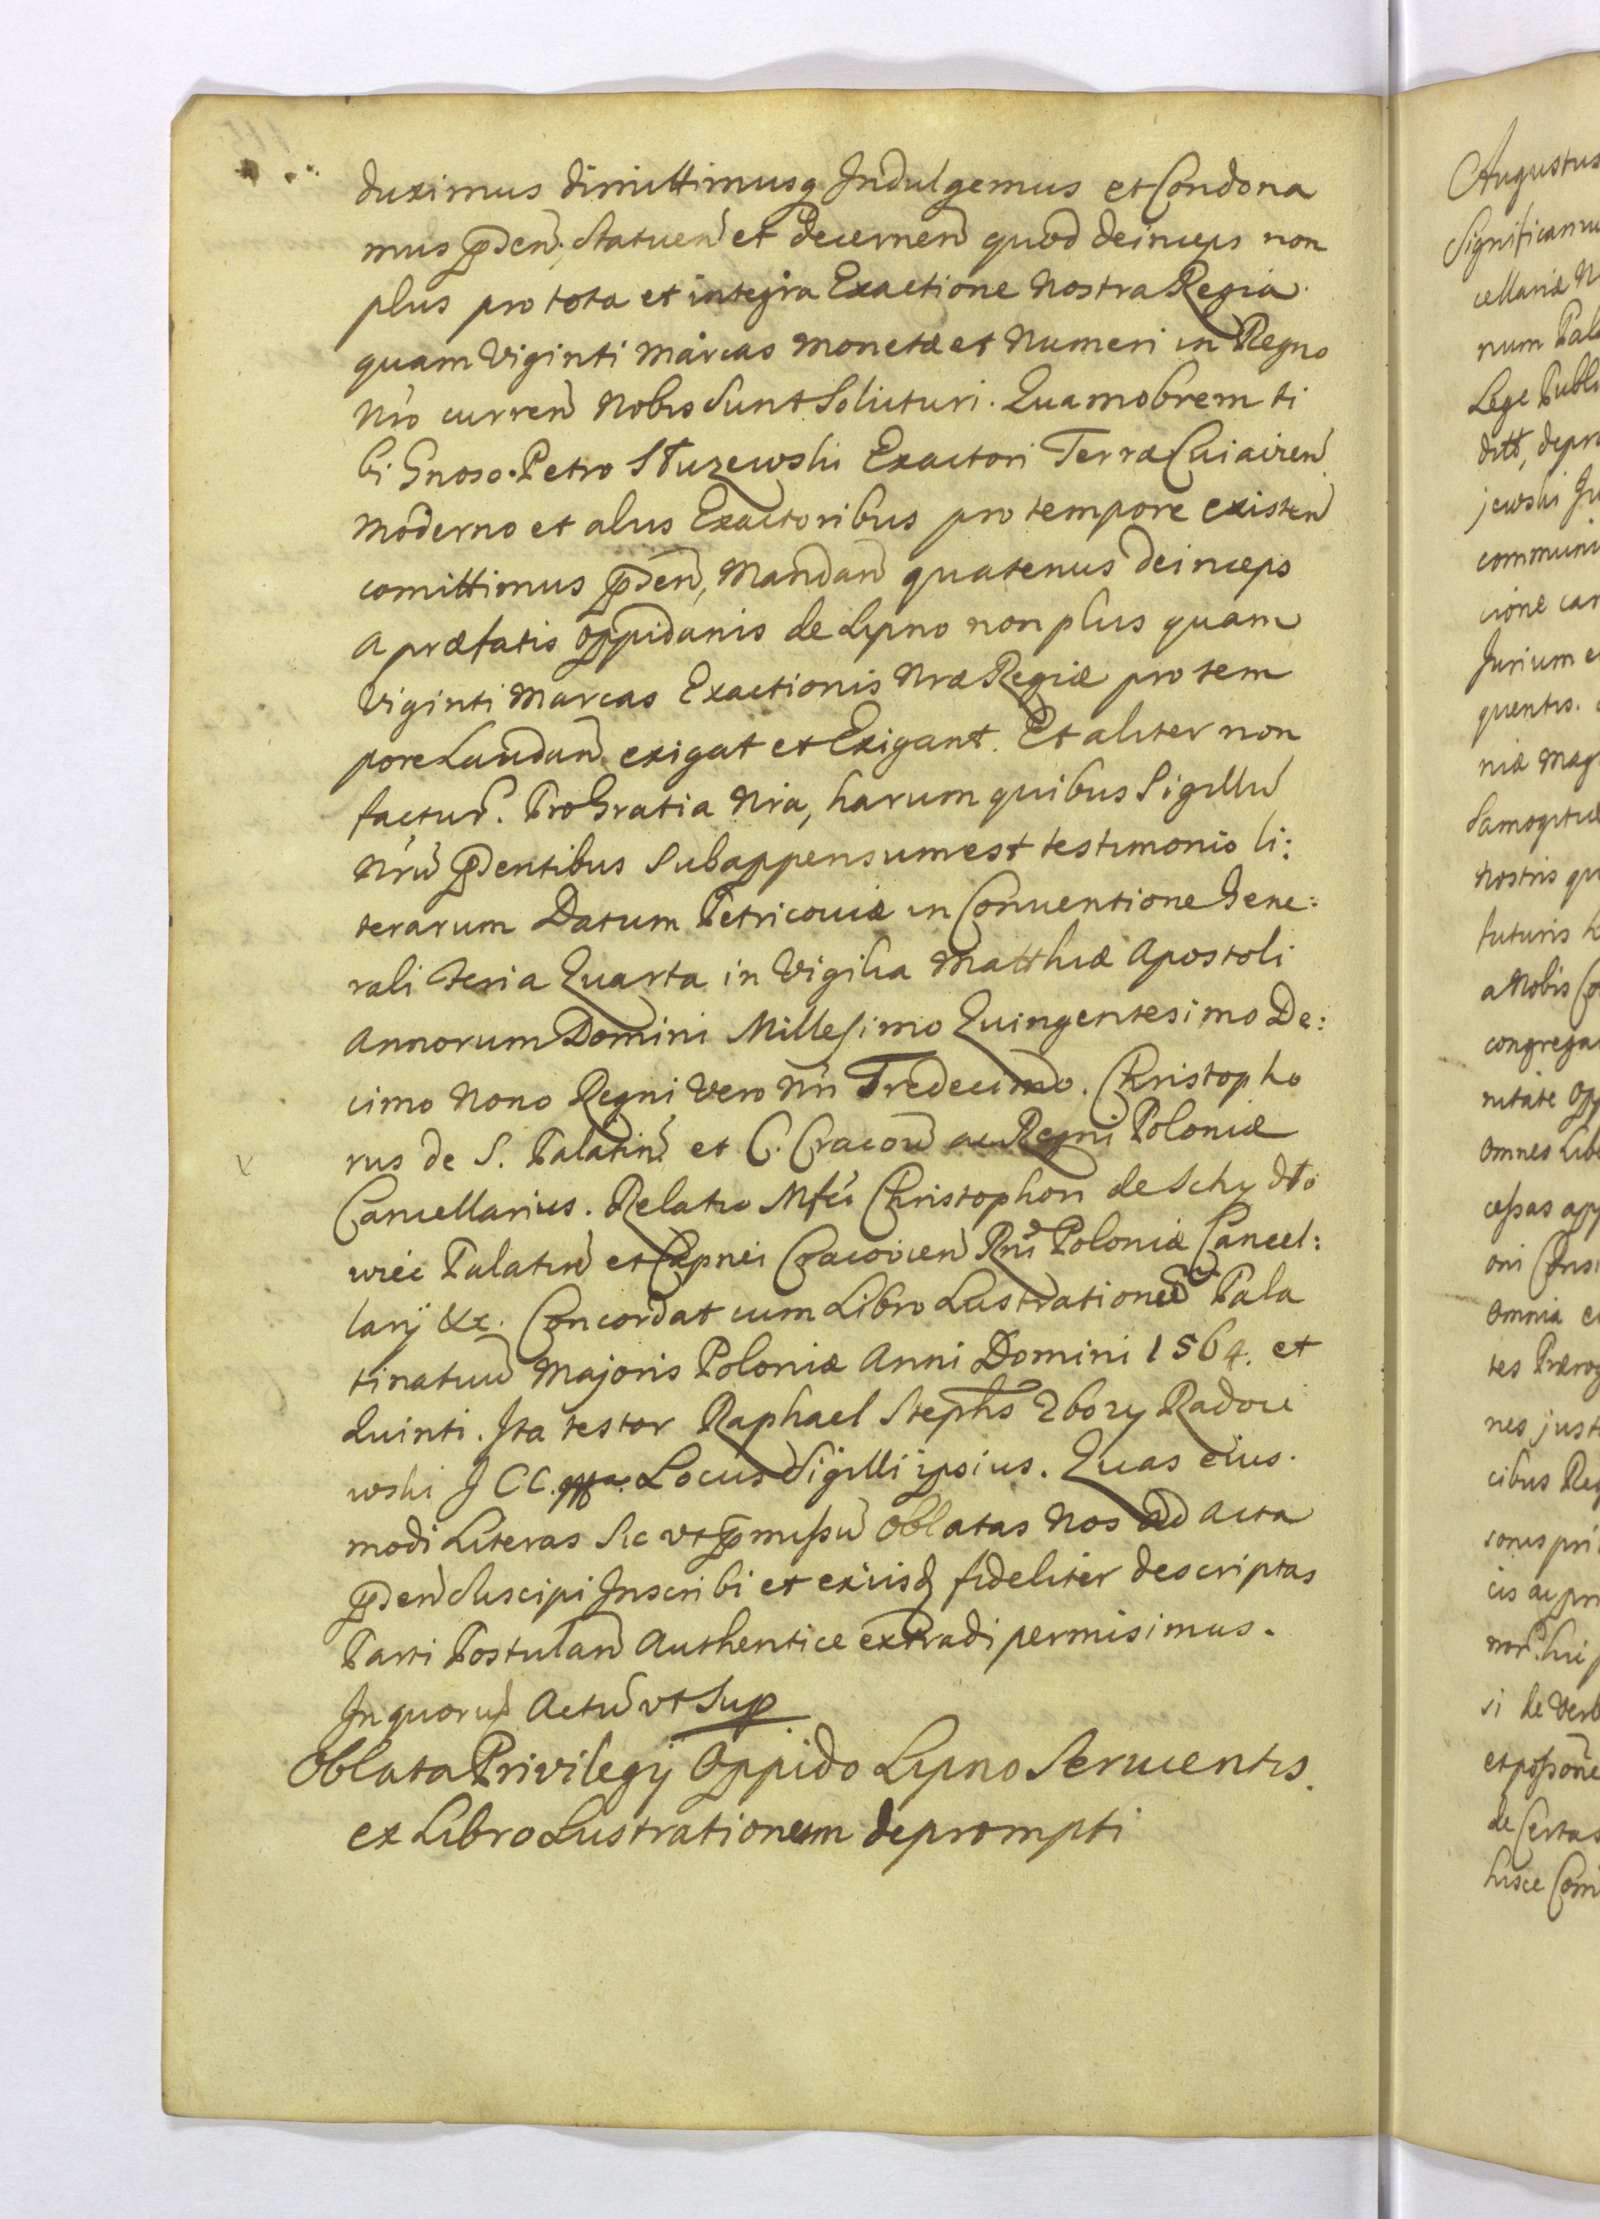 duximus dimittimusq Indulgemus et Condona
mus p̄sen. Statuen et decernen quod deinceps non
plus pro tota et integra Exactione Nostra Regia
quam Viginti Marcas Monetæ et Numeri in Regno
Nro curren Nobis Sunt Soluturi. Quamobrem ti
bi Gnoso. Petro Służewski Exactori Terræ Cuiavien
Moderno et alijs Exactoribus pro tempore existen
comittimus p̄sen, Mandan quatenus deinceps
a præfatis Oppidanis de Lipno non plus quam
Viginti Marcas Exactionis Nræ Regiæ pro tem
pore Laudan. exigat et Exigant. Et aliter non
factur. Pro Gratia Nra, harum quibus Sigillu
Nru p̄sentibus Subappensum est testimonio li:
terarum Datum Petricoviæ in Conventione Gene:
rali Feria Quarta in Vigilia Matthiæ Apostoli
Annorum Domini Millesimo Quingentesimo De:
cimo Nono Regni vero Nri Tredecimo. Christopho
rus de S. Palatin. et C. Cracov ac Regni Poloniæ
Cancellarius. Relatio Mfci Christophori de Schydło
wiec Palatin et Capnei Cracovien Rni Poloniæ Cancel:
larij &c. Concordat cum Libro Lustrationu Pala
tinatuu Majoris Poloniæ Anni Domini 1564. et
Quinti. Ita testor Raphael Stephs Zbozy Radoie
wski J CC. Locus Sigilli ipsius. Quas eius
modi Literas Sic ut p̄missu oblatas Nos ad Acta
p̄sen Suscipi Inscribi et ex iisdq fideliter descriptas
Parti Postulan Authentice extradi permisimus.
In quoru Actu ut Sup
Oblata Privilegij Oppido Lipno Servientis
ex Libro Lustrationum deprompti
Augustus
Significamu
cellariæ N
num Pala
Lege Publi
jewski Ju
communi
cione car
Jurium e
quentis.
niæ Mag
Samogitiæ
Nostris qu
futuris
a Nobis Co
congrega
nitate Opp
Omnes Libe
cessas app
oni Consi
Omnia e
tes Prærog
nes just
cibus Reg
sonis pri
cis ac pri
si de verb
et possone
de Certas
hisce Com